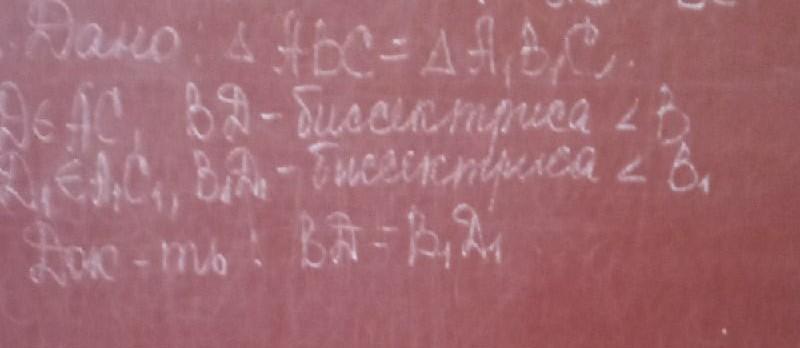 Дано: Δ ABC = Δ A₁B₁C₁.
D∈AC, BD - биссектриса < B
D₁∈A₁C₁, B₁D₁ - биссектриса < B₁
Док-ть: BD = B₁D₁